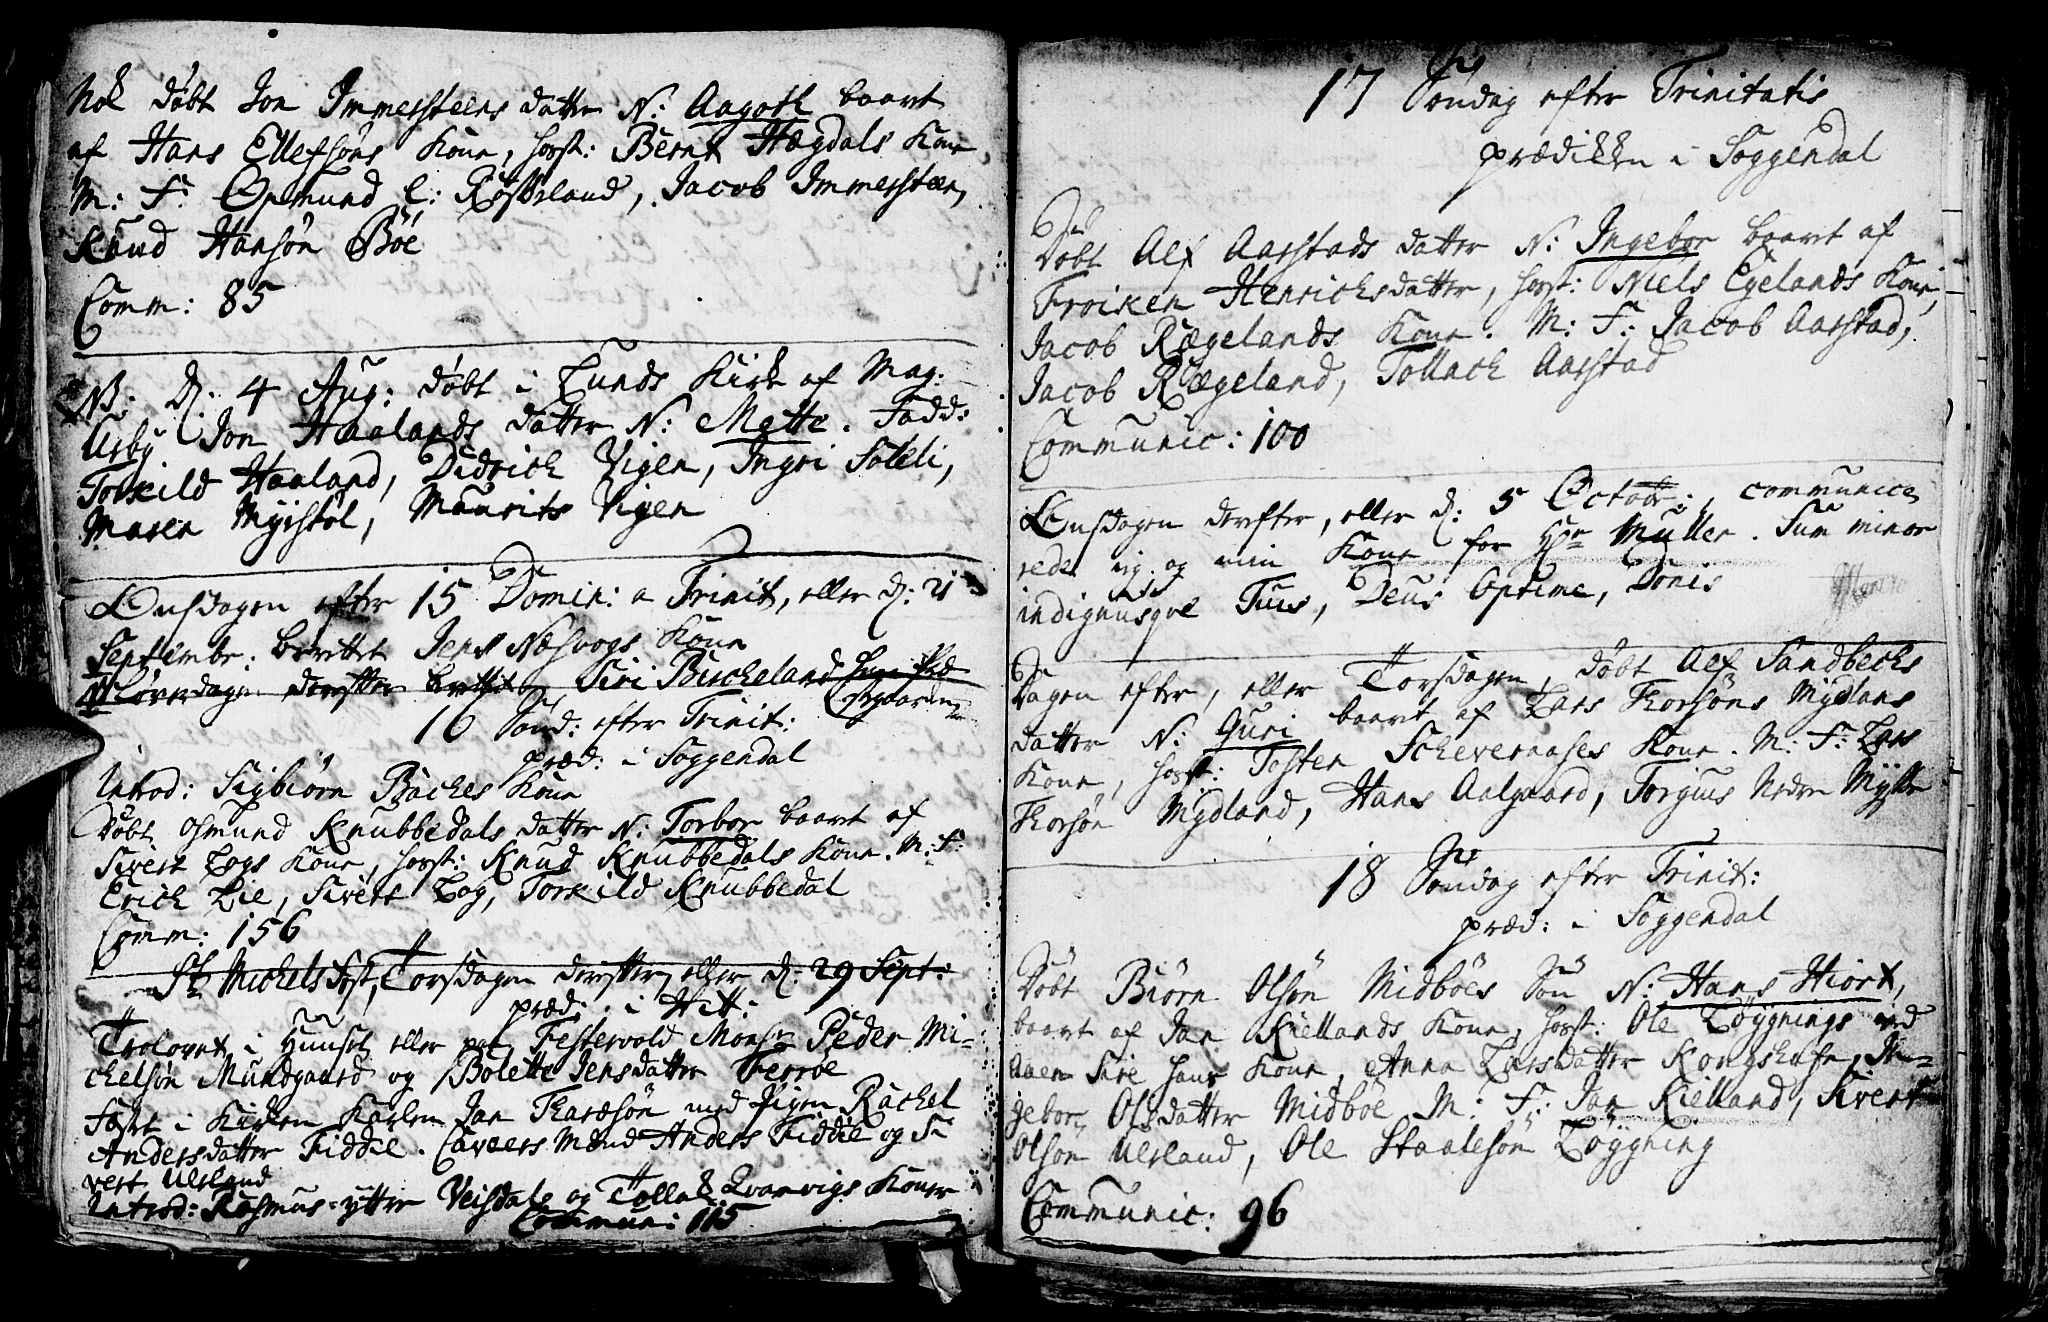 Nok døbt Jon Immersteens datter N: Aagoth baaret
af Hans Ellefsøns Kone, hosst: Bernt Hægdals Kone
M: F: Opmund l: Røsseland, Jacob Immersteen,
Knud Hansøn Böe
Comm: 85
NB. d: 4 Aug: døbt i Lunds Kirke af Mag:
Arby Jon Haalands datter N: Mette. Fadd:
Torkild Haaland, Didrich Vigen, Ingri Soleli,
Maren Myistol, Maurits Vigen
Onsdagen efter 15 Domin: a Trinit, eller d: 21
Septembr: berettet Jens Næsvogs Kone
Løverdagen derefter berettet Siri Bircheland
16 Sønd: efter Trinit:
præd: i Soggendal
Introd: Sigbiørn Baches Kone
Døbt Osmund Knubbedals datter N: Torbor baaret af
Sivert Logs Kone, hosst: Knud Knubbedals Kone. M: F:
Erich Lie, Sivert Log, Torkild Knubbedal
Comm: 156
St Michels Fest, Torsdagen derefter, eller d: 29 Sept:
præd: i Hit:
Trolovet i Huuset eller paa Festervold Monsr Peder Mi-
chelsøn Mundgaard og Bolette Jensdatter Ferröe
Fæst i Kirken Karlen Jan Tharæsön med Pigen Rachel
Andersdatter Fiddie. Caveers Mænd Anders Fiddie og Si
vert Uesland
Introd: Rasmus ytter Veisdals og Tollak Qvanvigs Koner
Commun: 115
17 Søndag efter Trinitatis
prædikken i Soggendal
Døbt Alf Aarstads datter N: Ingebor baaret af
Froiken Henrichsdatter, hosst: Niels Egelands Kone,
Jacob Rægelands Kone. M: F: Jacob Aarstad,
Jacob Rægeland, Tollach Aarstad
Communic: 100
Onsdagen derefter, eller d: 5 Octobr:, communice
rede jeg og min Kone for Hr Müller. Sum minor
indignusqve Tuis, Deus Optime, Donis
Dagen efter, eller Torsdagen, døbt Alf Sandbechs
datter N: Guri baaret af Lars Thorsøns Mydlans
Kone, hosst: Tosten Scheveraases Kone. M: F: Lars
Thorsøn Mydland, Hans Aalgaard, Torgius Neder Mysse
18 Søndag efter Trinit:
præd: i Soggendal
Døbt Biørn Olsøn Midböes Søn N: Hans Hiort,
baaret af Jan Kiellands Kone, hosst: Ole Löygnings ved
Aaen Sire hans Kone, Anna Larsdatter Kongshafn, In-
gebor Olsdatter Midböe M: F: Jan Kielland, Sivert
Olsøn Uesland, Ole Staalesøn Löygning
Communic: 96